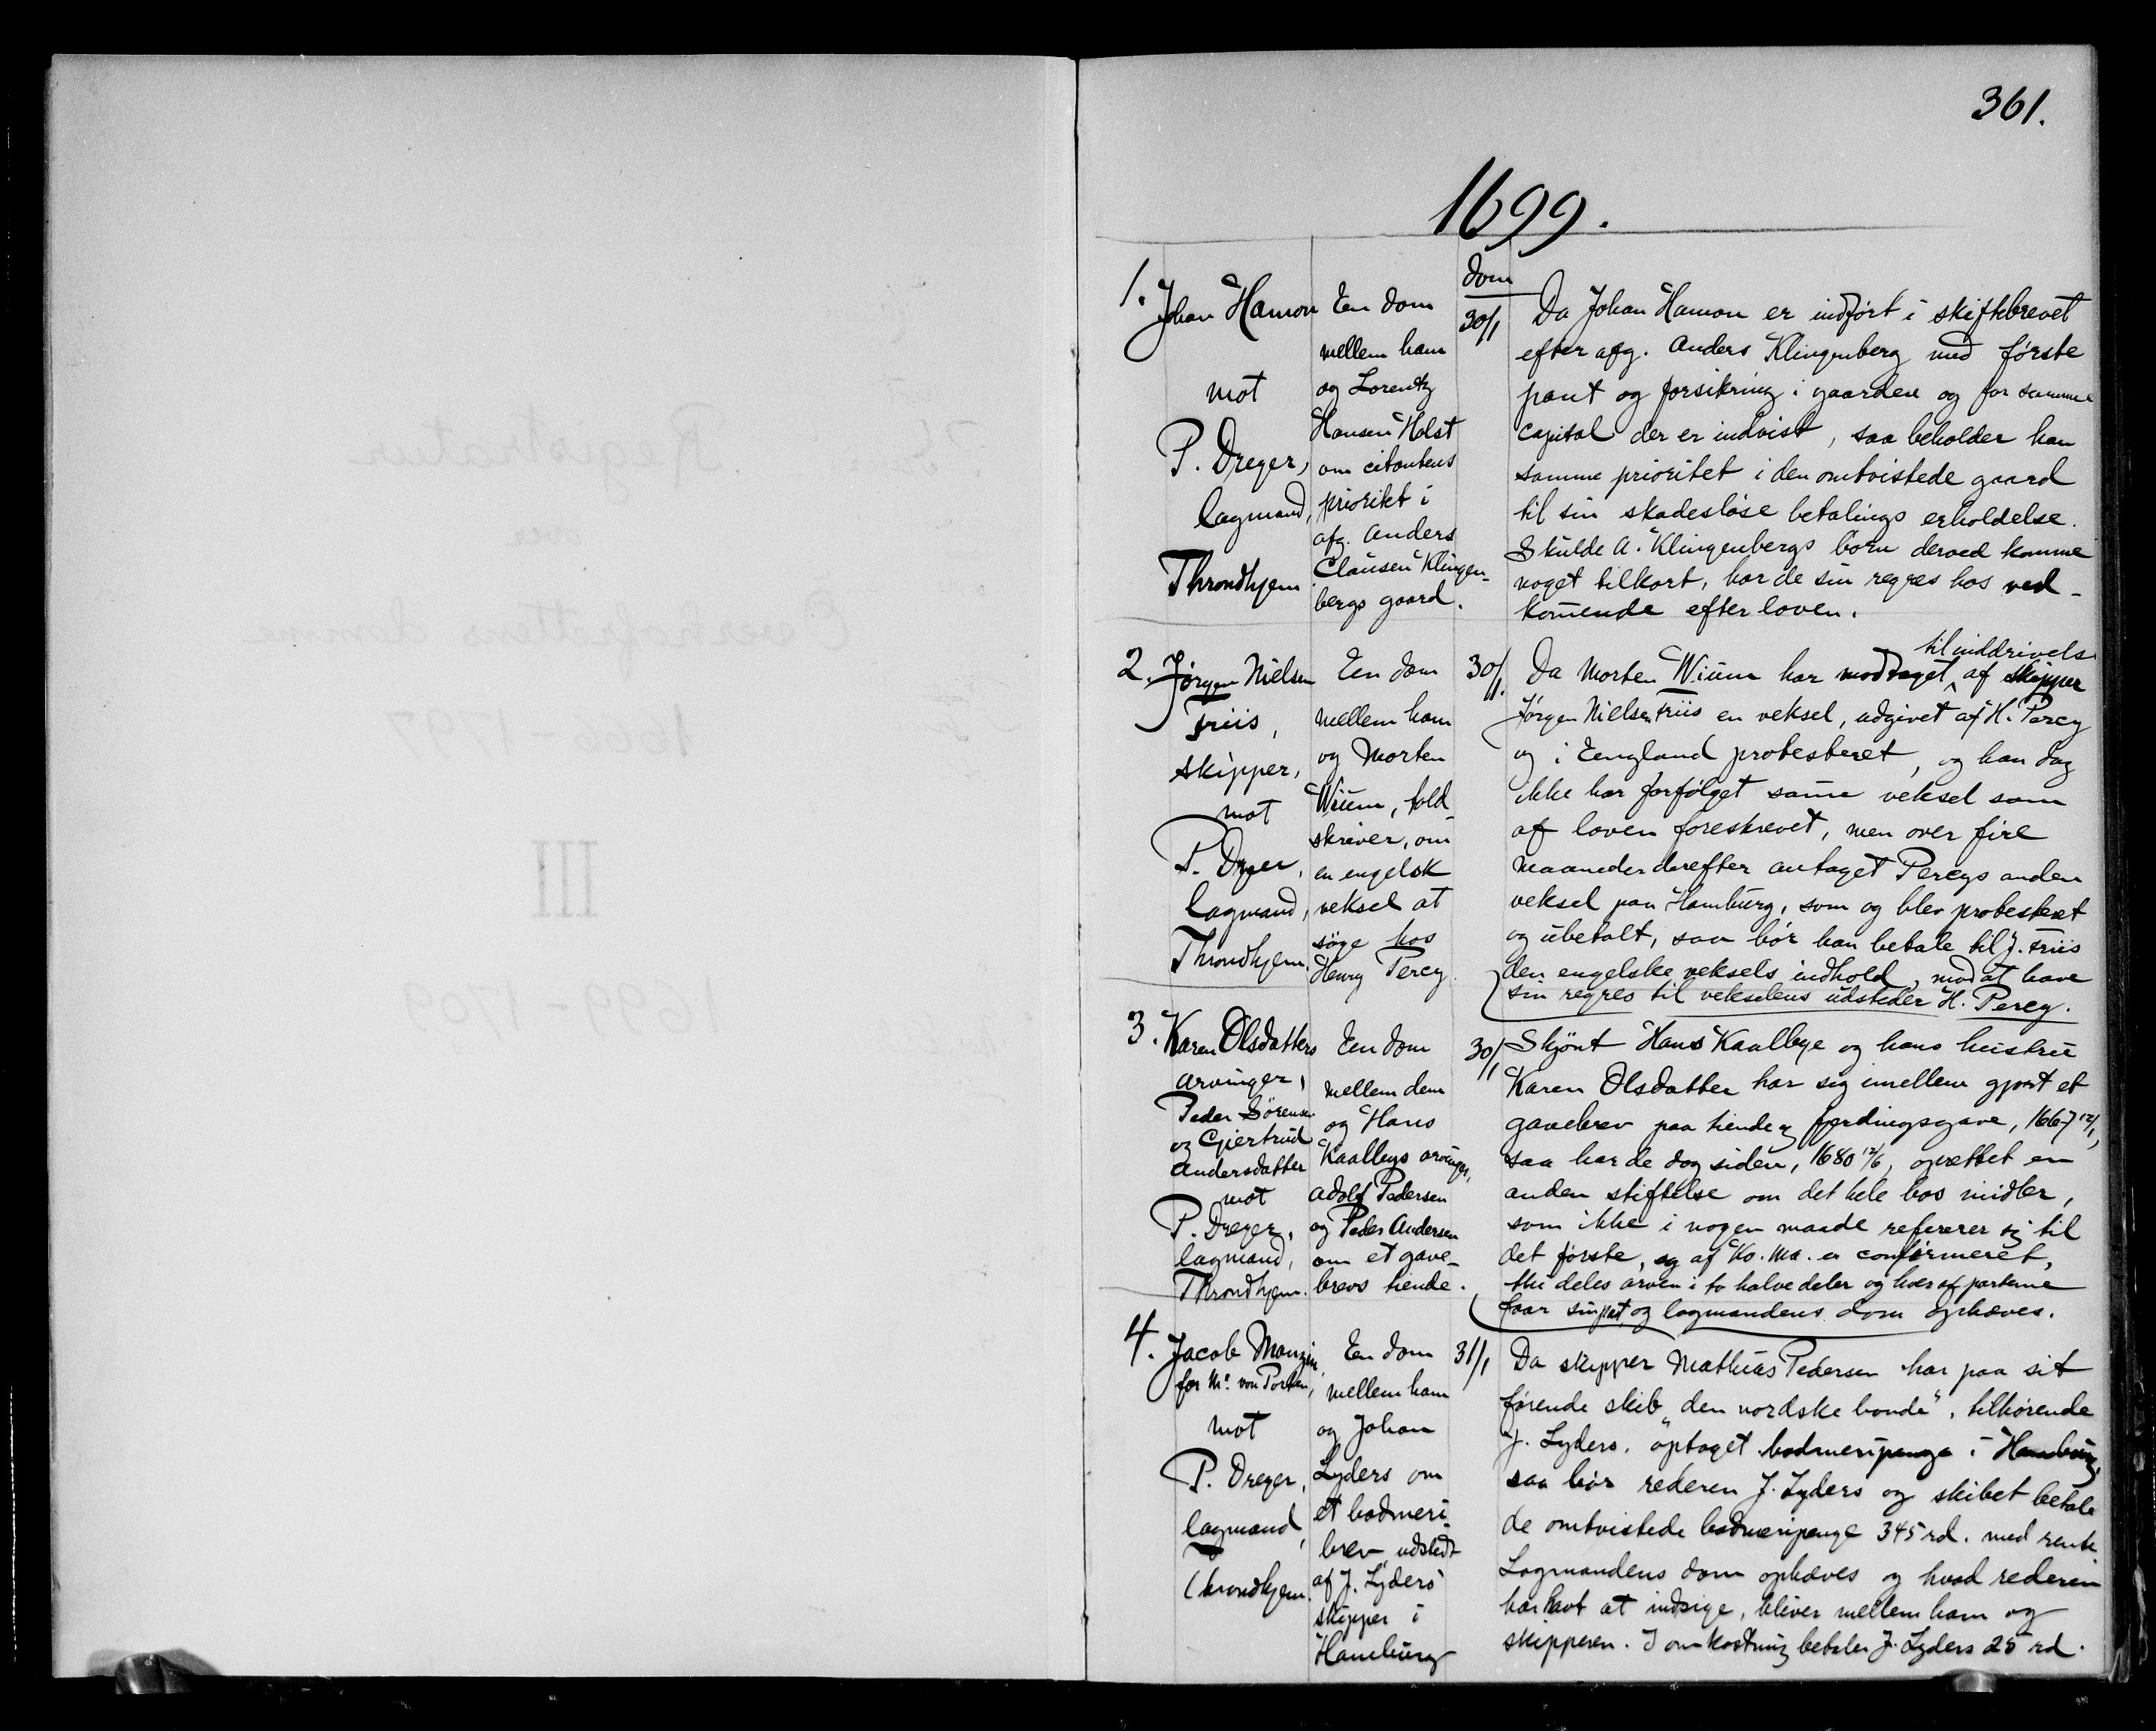 361.
1699.
dom
1. Johan Hamon
mot
P. Dreyer,
lagmand,
Throndhjem
En dom
mellem ham
og Lorentz
Hansen Holst
om citantens
prioritet i
afg. Anders
Clausen Klingen-
bergs gaard.
30/1
Da Johan Hamon er indført i skiftebrevet
efter afg. Anders Klingenberg med første
pant og forsikring i gaarden og for samme
capital der er indvist, saa beholder han
samme prioritet i den omtvistede gaard
til sin skadesløse betalings erholdelse.
Skulde A. Klingenbergs børn derved komme
noget tilkort, har de sin regres hos ved-
kommende efter loven.
2. Jørgen Nielsen
Friis,
skipper,
mot
P. Dreyer,
lagmand,
Throndhjem.
En dom
mellem ham
og Morten
Wium, told
skriver, om
en engelsk
veksel at
søge hos
Henry Percy.
30/1.
til inddrivelse
Da Morten Wium har modtaget af skipper
Jørgen Nielsen Friis en veksel, udgivet af H. Percy
og i Eengland protesteret, og han dog
ikke har forfølget samme veksel som
af loven foreskrevet, men over fire
maaneder derefter antaget Percys anden
veksel paa Hamburg, som og blev protesteret
og ubetalt, saa bør han betale til J. Friis
den engelske veksels indhold, mod at have
sin regres til vekselens udsteder H. Percy.
3. Karen Olsdatters
arvinger,
Peder Sørensen
og Gjertrud
Andersdatter
mot
P. Dreyer,
lagmand,
Throndhjem.
En dom
mellem dem
og Hans
Kaalbys arvinger,
Adolf Pedersen
og Peder Andersen
om et gave-
brevs tiende.
30/1
Skjønt Hans Kaalbye og hans hustru
Karen Olsdatter har sig imellem gjort et
gavebrev paa tiende og fjerdingsgave, 1667 12/1,
saa har de dog siden, 1680 12/6, oprettet en
anden stiftelse om det hele bos midler,
som ikke i nogen maade refererer sig til
det første, og af Ko. Ma. er confirmeret,
thi deles arven i to halve deler og hver af parterne
faar sin part, og lagmandens dom ophæves.
4. Jacob Manzin,
for Mr. von Porten,
mot
P. Dreyer,
lagmand,
Throndhjem.
En dom
mellem ham
og Johan
Lyders om
et bodmeri-
brev, udstedt
af J. Lyders
skipper i
Hamburg
31/1
Da skipper Mathias Pedersen har paa sit
førende skib "den nordske bonde", tilhørende
J. Lyders, optaget bodmeripenge i Hamburg,
saa bør rederen J. Lyders og skibet betale
de omtvistede bodmeripenge 345 rd. med rente
Lagmandens dom ophæves og hvad rederen
har havt at indsige, bliver mellem ham og
skipperen. I omkostning betaler J. Lyders 25 rd.